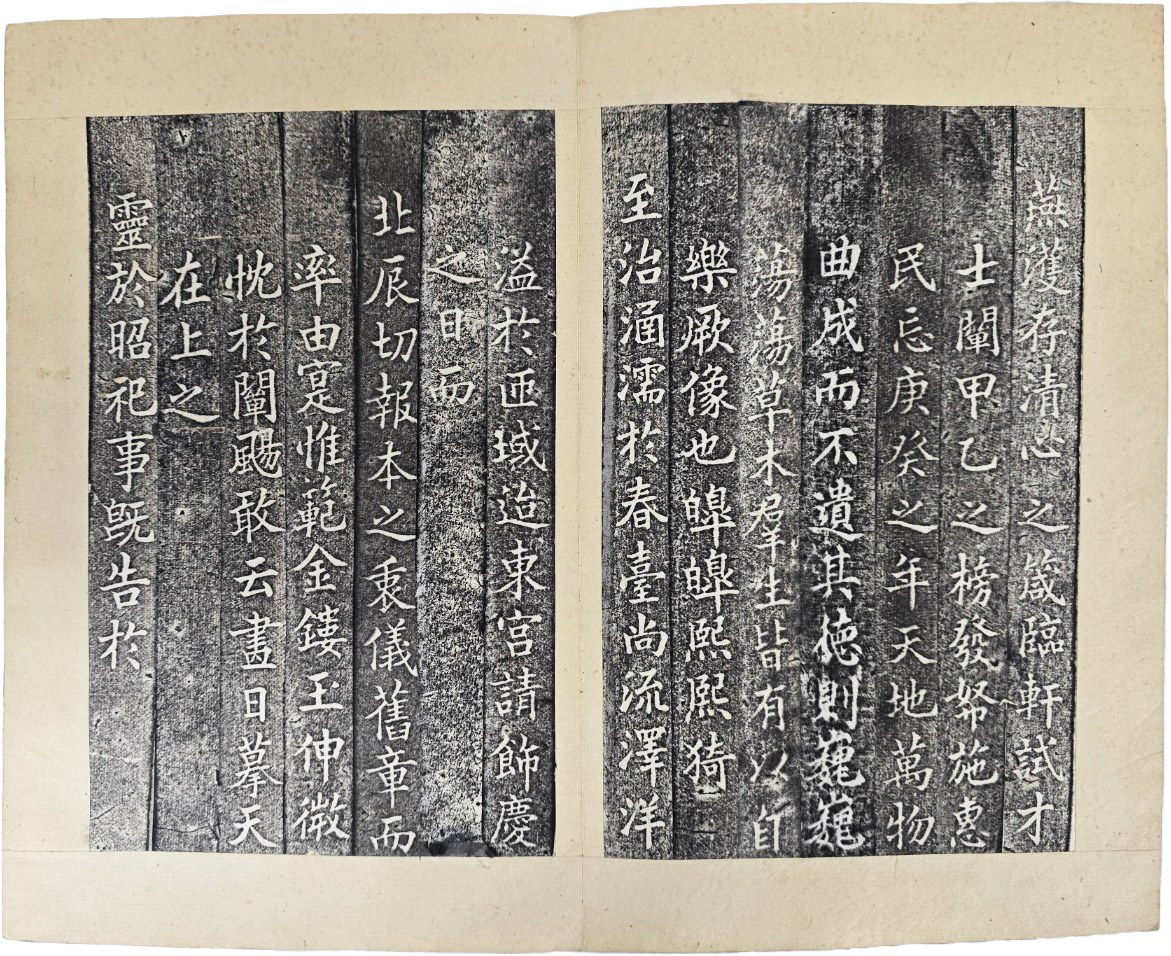 燕濩存清心之箴臨軒試才
士闡甲乙之榜發帑施惠
民忘庚癸之年天地萬物
曲成而不遺其德則巍巍
蕩蕩草木羣生皆有以自
樂厥像也皡皡熙熙猗
至治涵濡於春臺尚流澤洋
溢於匝域迨東宮請飾慶
之日而
北辰切報本之衷儀舊章而
率由寔惟範金鏤玉伸微
忱於闡颺敢云畫日摹天
在上之
靈於昭祀事旣告於